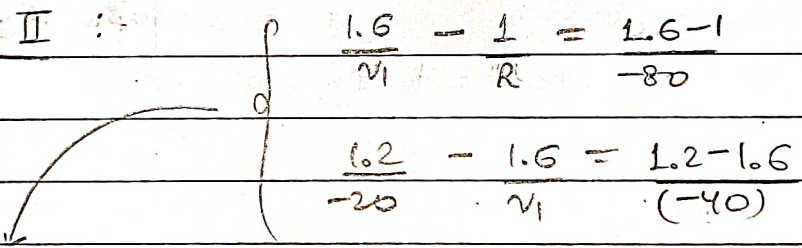 II :- 1.6/v₁ - 1/R = 1.6-1/-80
1.2/-20 - 1.6/v₁ = 1.2-1.6/(-40)